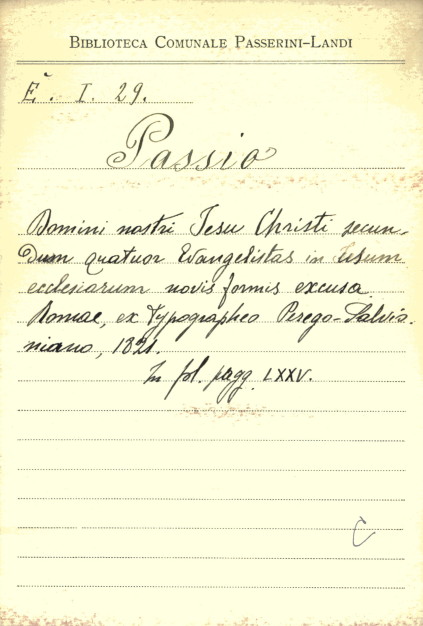 BIBLIOTECA COMUNALE PASSERINI-LANDI
E. I. 29.
Passio
Domini nostri Jesu Christi secun-
dum quatuor Evangelistas in usum
ecclesiarum novis formis excusa.
Romae, ex Typographeo Perego-Salvio-
niano, 1821.
In fol. pagg. LXXV.
C